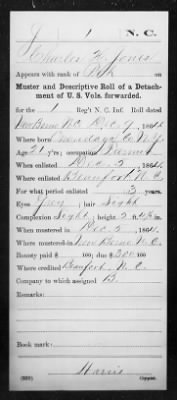 J 1 N.C.
Charles H. Jones
Appears with rank of Pvt. on
Muster and Descriptive Roll of a Detachment of U. S. Vols. forwarded.
for the 1 Reg't N. C. Inf. Roll dated
New Berne N.C. Dec. 9, 1864.
Where born Onondaga Co. N.Y.
Age 21 y'rs; occupation
When enlisted Dec. 5, 1864.
Where enlisted Beaufort N.C.
For what period enlisted 3 years.
Eyes Grey; hair Light
Complexion Light; height 5 ft. in.
When mustered in Dec. 5, 1864.
Where mustered in New Berne N.C.
Bounty paid $ 100; due $ 300 100
Where credited Beaufort N.C.
Company to which assigned B.
Remarks:
Book mark:
Harris
Copyist.